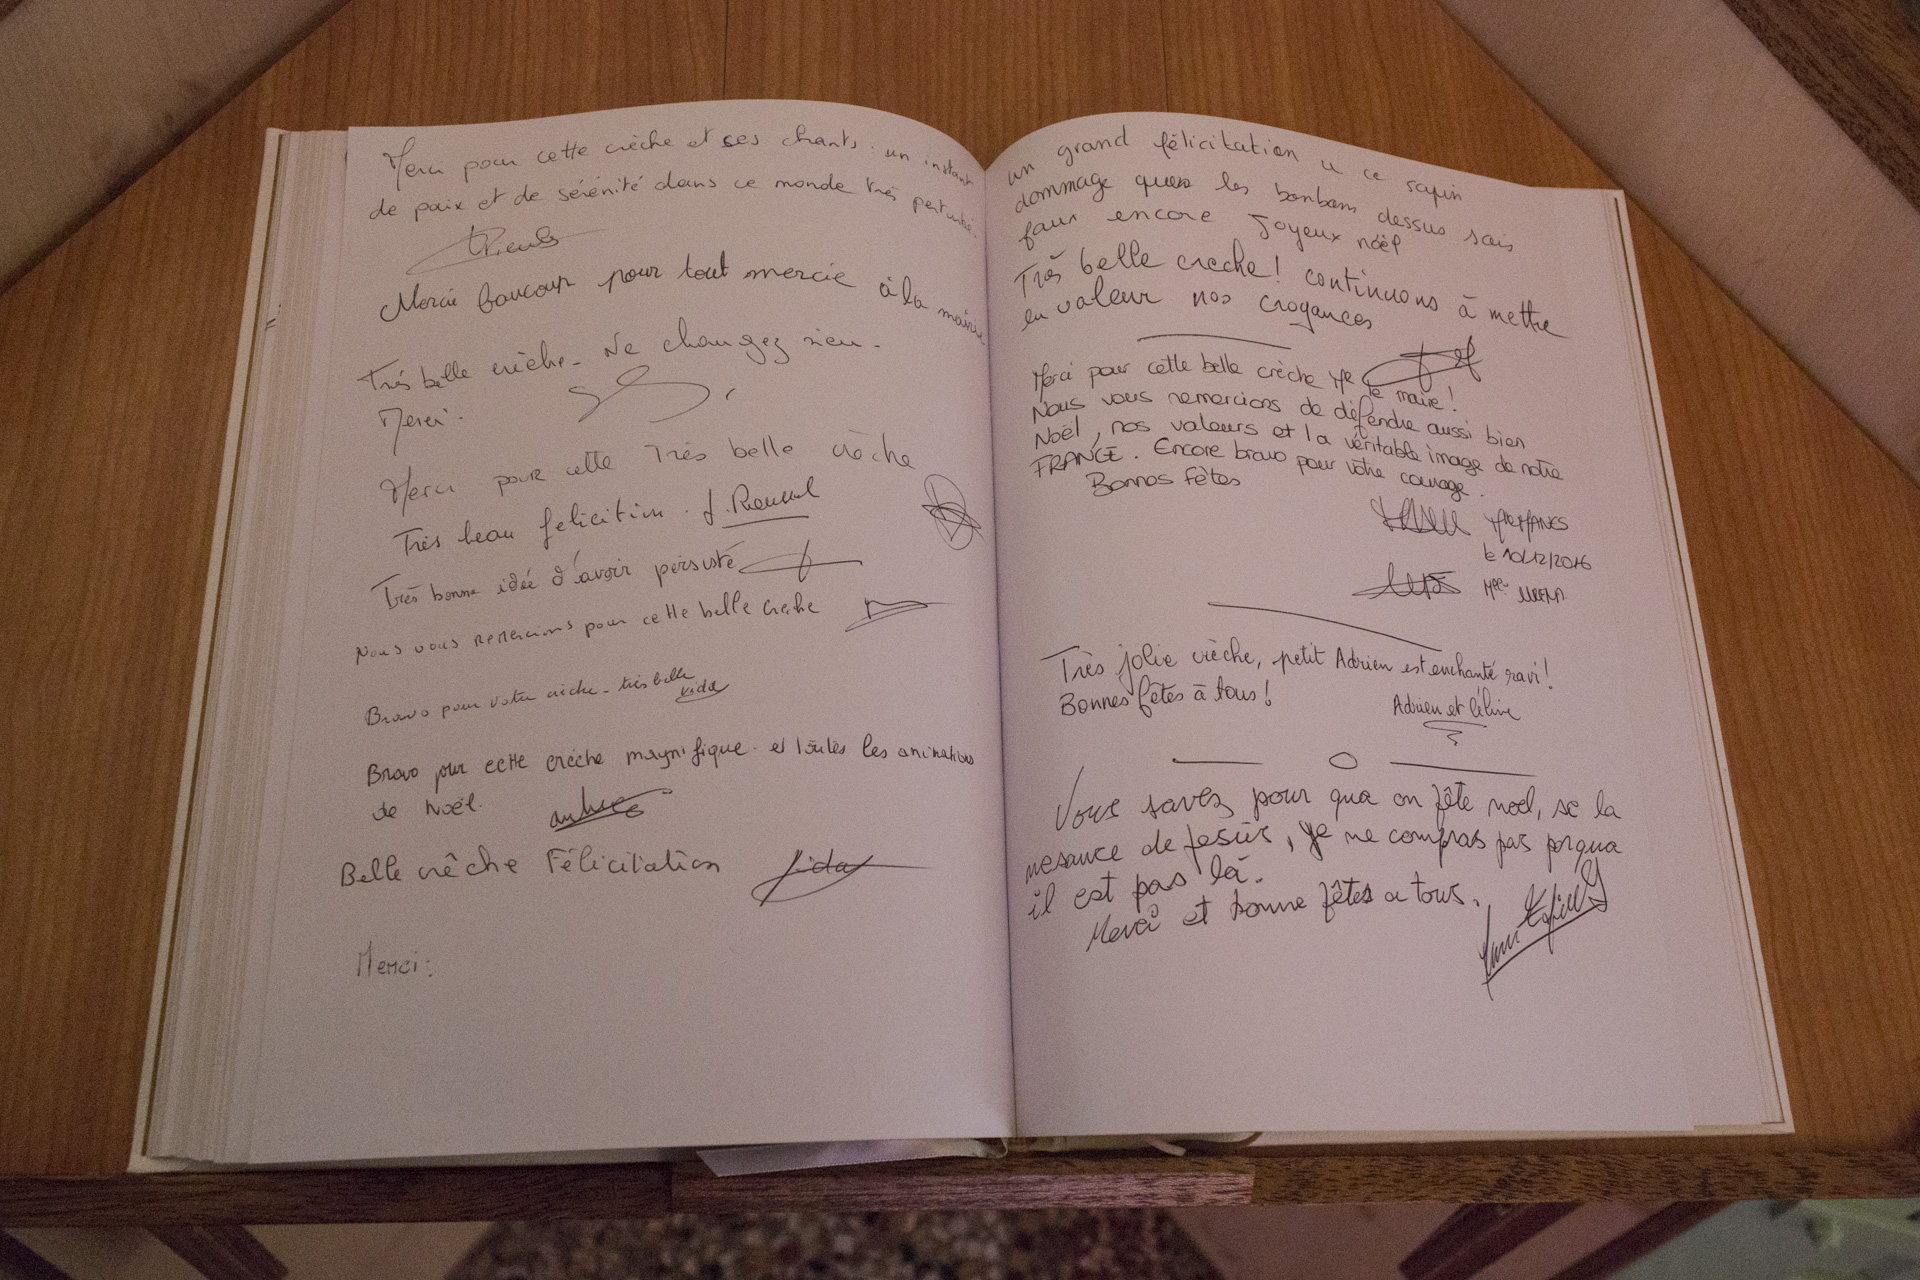 Merci pour cette crèche et ses chants : un instant
de paix et de sérénité dans ce monde très perturbé.
Mercie baucoup pour tout mercie à la mairie
Très belle crèche - Ne changez rien.
Merci.
Merci pour cette Très belle crèche
Très beau felicition. J.
Très bonne idée d'avoir persisté
Nous vous remercions pour cette belle creche
Bravo pour votre crèche - très belle
Vida
Bravo pour cette crèche magnifique. et toutes les animations
de Noël.
Belle crêche Félicitation
Merci :
un grand félicitation a ce sapin
dommage que les bonbons dessus sais
faux encore Joyeux noël
Très belle creche ! continuons à mettre
en valeur nos croyances
Merci pour cette belle crèche Mr le maire !
Nous vous remercions de défendre aussi bien
Noël, nos valeurs et la véritable image de notre
FRANCE. Encore bravo pour votre courage.
Bonnes fêtes
le 10/12/2016
Très jolie crèche, petit Adrien est enchanté ravi !
Bonnes fêtes à tous !
Adrien et Céline
Vous savez pour qua on fête noël, se la
nesance de Jesus, je ne compras pas porqua
il est pas là.
Merci et bonne fêtes a tous.